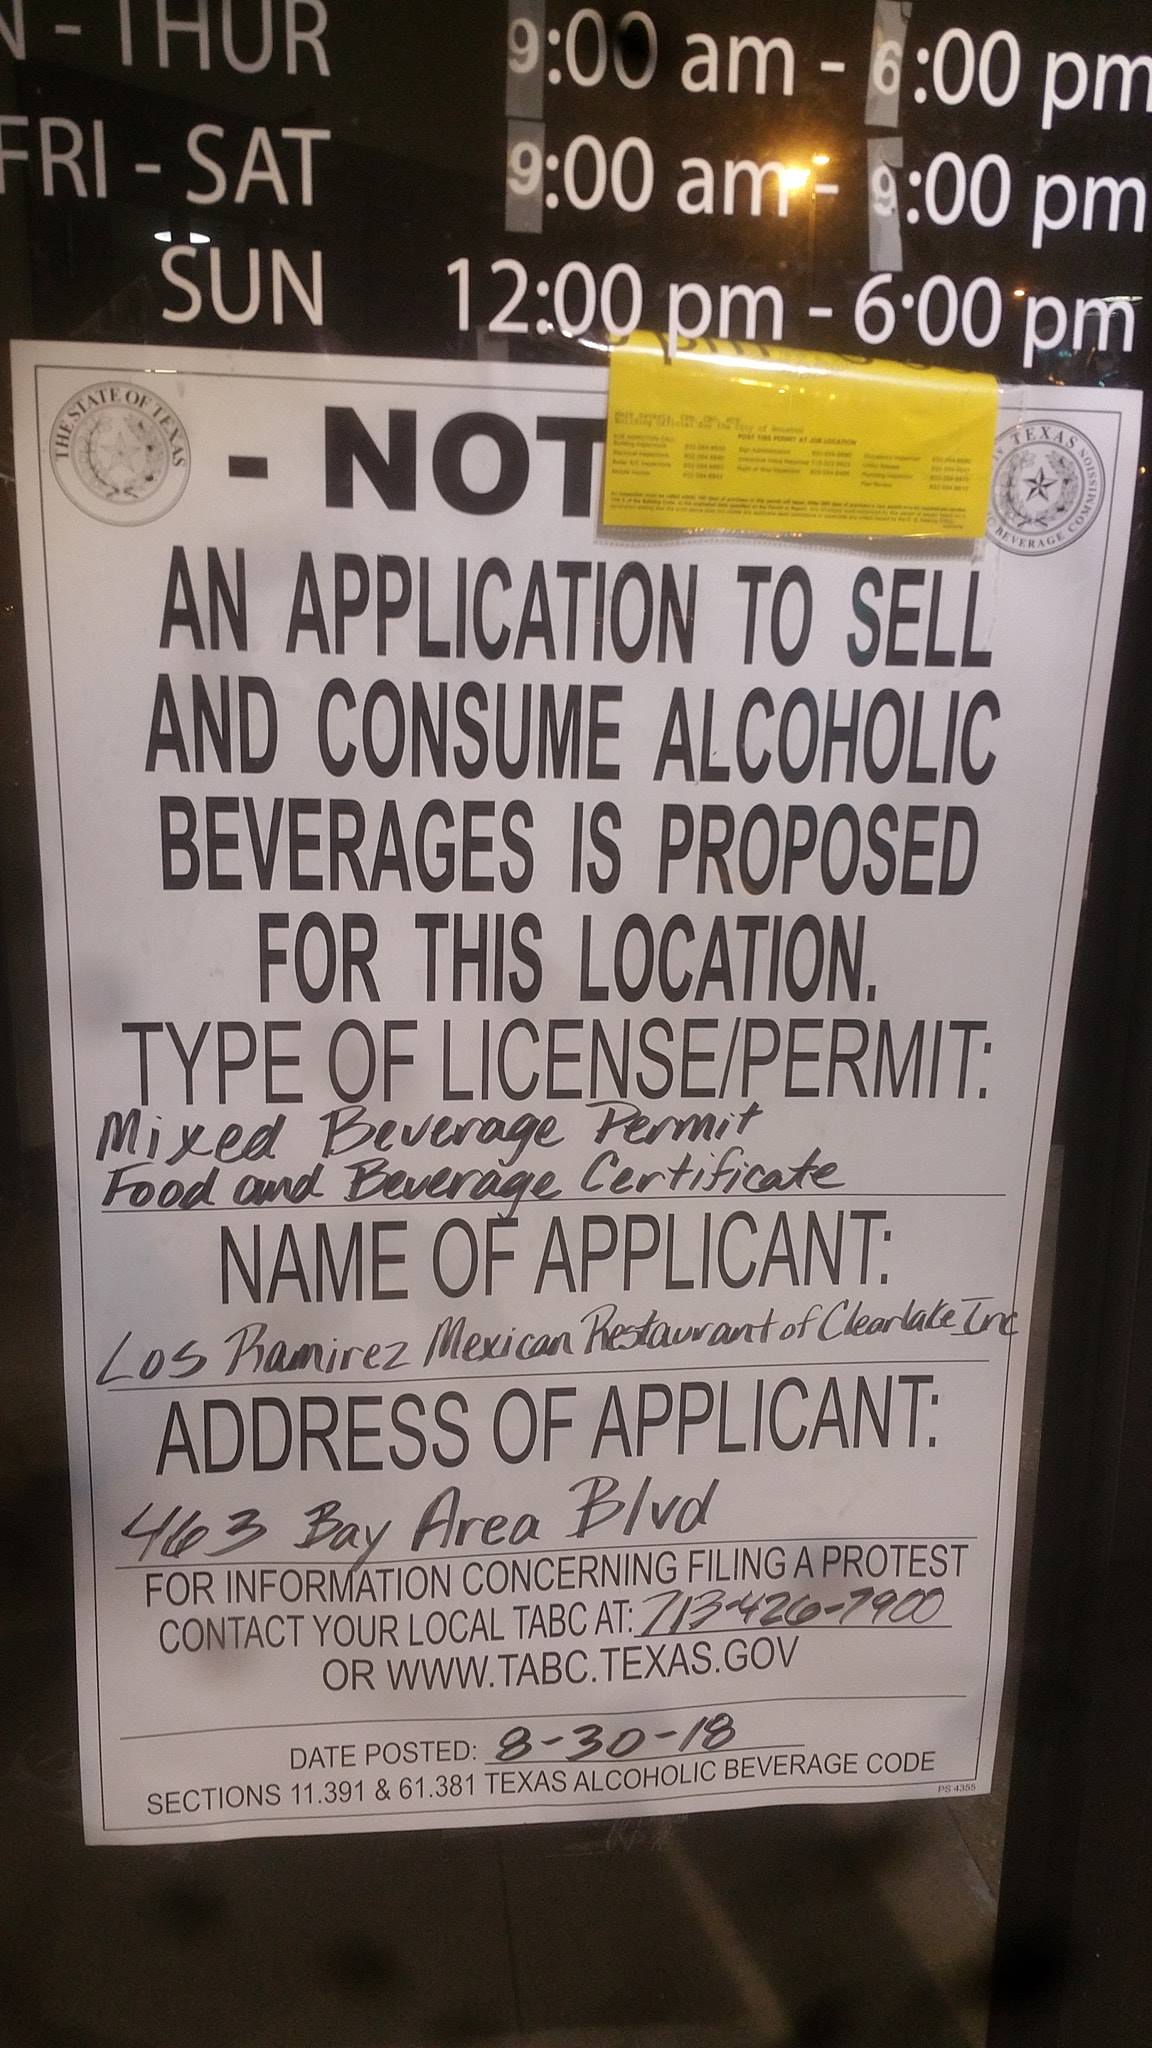 - THUR 9:00 am - 6:00 pm
FRI - SAT 9:00 am - 9:00 pm
SUN 12:00 pm - 6:00 pm
THE STATE OF TEXAS
- NOT
TEXAS
BEVERAGE COMMISSION
Building Official for the City of Houston
POST THIS PERMIT AT JOB LOCATION
AN APPLICATION TO SELL
AND CONSUME ALCOHOLIC
BEVERAGES IS PROPOSED
FOR THIS LOCATION.
TYPE OF LICENSE/PERMIT:
Mixed Beverage Permit
Food and Beverage Certificate
NAME OF APPLICANT:
Los Ramirez Mexican Restaurant of Clearlake Inc
ADDRESS OF APPLICANT:
463 Bay Area Blvd
FOR INFORMATION CONCERNING FILING A PROTEST
CONTACT YOUR LOCAL TABC AT: 713-426-7900
OR WWW.TABC.TEXAS.GOV
DATE POSTED: 8-30-18
SECTIONS 11.391 & 61.381 TEXAS ALCOHOLIC BEVERAGE CODE
PS 4355